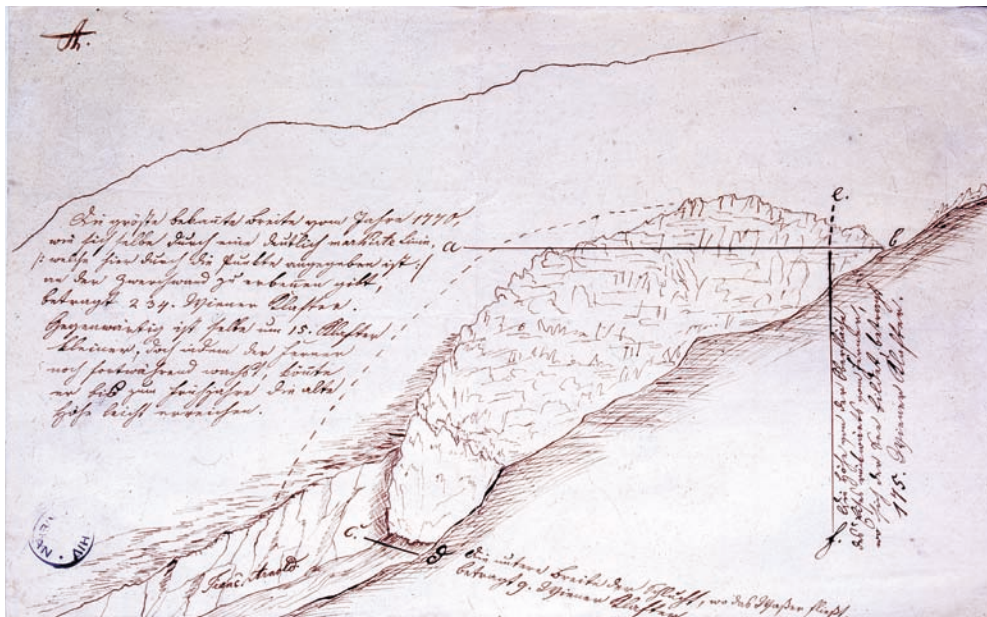 A.
Die größte bekannte Breite vom Jahre 1770,
wie sich selbe durch eine deutlich markirte Linie,
/: welche hier durch die Punkte angegeben ist :/
an der Zwerchwand zu erkennen gibt,
betragt 234. Wiener Klafter.
Gegenwärtig ist selbe um 15. Klafter
kleiner, doch indem der Ferner
noch fortwährend wachst, könnte
er bis zum Frühjahre die alte
Höhe leicht erreichen.
a
b
e.
f.
Die Höhe von der
wo sich der See selbst betragt
175. Wiener Klafter.
c.
d
Die untere Breite der Schlucht, wo das Waßer fließt
betragt 9. Wiener Klafter
Franc. Arnold